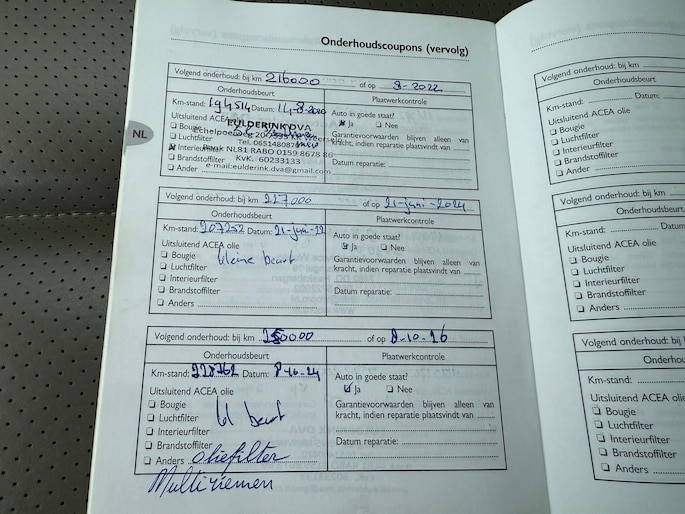 Onderhoudscoupons (vervolg)
NL
Volgend onderhoud: bij km 216000 of op 8-2022
Onderhoudsbeurt Plaatwerkcontrole
Km-stand: 194514 Datum: 14-8-2020 Auto in goede staat?
Uitsluitend ACEA olie ☒ Ja ☐ Nee
EULDERINK DVA
☐ Bougie Garantievoorwaarden blijven alleen van
☐ Luchtfilter kracht, indien reparatie plaatsvindt van
Tel.
☒ Interieurfilter
Bank NL81 RABO 0159 8678 86
☐ Brandstoffilter Datum reparatie:
KvK. 60233133
e-mail:eulderink.dva@gmail.com
☐ Ander
Volgend onderhoud: bij km 227000 of op 21-juni-2024
Onderhoudsbeurt Plaatwerkcontrole
Km-stand: 207252 Datum: 21-juni-22 Auto in goede staat?
Uitsluitend ACEA olie ☑ Ja ☐ Nee
☐ Bougie kleine beurt Garantievoorwaarden blijven alleen van
☐ Luchtfilter kracht, indien reparatie plaatsvindt van
☐ Interieurfilter
☐ Brandstoffilter Datum reparatie:
☐ Anders
Volgend onderhoud: bij km of op 8-10-26
Onderhoudsbeurt Plaatwerkcontrole
Km-stand: 228762 Datum: 8-10-24 Auto in goede staat?
Uitsluitend ACEA olie ☑ Ja ☐ Nee
☐ Bougie Garantievoorwaarden blijven alleen van
☐ Luchtfilter kl beurt kracht, indien reparatie plaatsvindt van
☐ Interieurfilter
☐ Brandstoffilter Datum reparatie:
☐ Anders oliefilter
Multiriemen
Volgend onderhoud: bij km
Onderhoudsbeurt
Km-stand: Datum:
Uitsluitend ACEA olie
☐ Bougie
☐ Luchtfilter
☐ Interieurfilter
☐ Brandstoffilter
☐ Ander
Volgend onderhoud: bij km
Onderhoudsbeurt
Km-stand:
Uitsluitend ACEA olie
☐ Bougie
☐ Luchtfilter
☐ Interieurfilter
☐ Brandstoffilter
☐ Anders
Volgend onderhoud: bij
Km-stand:
Uitsluitend ACEA
☐ Bougie
☐ Luchtfilter
☐ Interieurfilter
☐ Brandstoffilter
☐ Anders